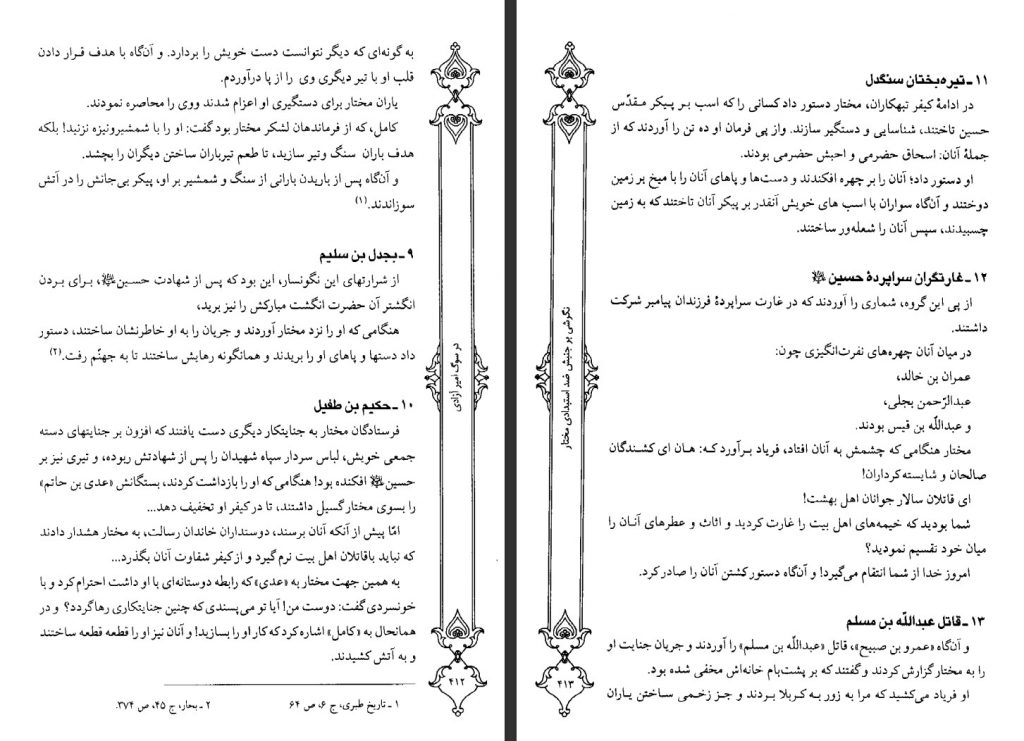 به گونه‌ای که دیگر نتوانست دست خویش را بردارد. و آن‌گاه با هدف قرار دادن
قلب او با تیر دیگری وی را از پا درآوردم.
یاران مختار برای دستگیری او اعزام شدند ووی را محاصره نمودند.
کامل، که از فرماندهان لشکر مختار بود گفت: او را با شمشیرونیزه نزنید! بلکه
هدف باران سنگ وتیر سازید، تا طعم تیرباران ساختن دیگران را بچشد.
و آن‌گاه پس از باریدن بارانی از سنگ و شمشیر بر او، پیکر بی‌جانش را در آتش
سوزاندند.(۱)
۹ ـ بجدل بن سلیم
از شرارتهای این نگونسار، این بود که پس از شهادت حسین﷣، برای بردن
انگشتر آن حضرت انگشت مبارکش را نیز برید،
هنگامی که او را نزد مختار آوردند و جریان را به او خاطرنشان ساختند، دستور
داد دستها و پاهای او را بریدند و همانگونه رهایش ساختند تا به جهنّم رفت.(۲)
۱۰ ـ حکیم بن طفیل
فرستادگان مختار به جنایتکار دیگری دست یافتند که افزون بر جنایتهای دسته
جمعی خویش، لباس سردار سپاه شهیدان را پس از شهادتش ربوده، و تیری نیز بر
حسین﷣ افکنده بود! هنگامی که او را بازداشت کردند، بستگانش «عدی بن حاتم»
را بسوی مختار گسیل داشتند، تا در کیفر او تخفیف دهد...
امّا پیش از آنکه آنان برسند، دوستداران خاندان رسالت، به مختار هشدار دادند
که نباید باقاتلان اهل بیت نرم گیرد و از کیفر شقاوت آنان بگذرد...
به همین جهت مختار به «عدی» که رابطه دوستانه‌ای با او داشت احترام کرد و با
خونسردی گفت: دوست من! آیا تو می‌پسندی که چنین جنایتکاری رها گردد؟ و در
همانحال به «کامل» اشاره کرد که کار او را بسازید! و آنان نیز او را قطعه قطعه ساختند
و به آتش کشیدند.
۱ ـ تاریخ طبری، ج ۶، ص ۶۴
۲ ـ بحار، ج ۴۵، ص ۳۷۴.
در سوگ امیر آزادی
۴۱۲
۱۱ ـ تیره‌بختان سنگدل
در ادامهٔ کیفر تبهکاران، مختار دستور داد کسانی را که اسب بر پیکر مقدّس
حسین تاختند، شناسایی و دستگیر سازند. واز پی فرمان او ده تن را آوردند که از
جملهٔ آنان: اسحاق حضرمی و احبش حضرمی بودند.
او دستور داد؛ آنان را بر چهره افکندند و دست‌ها و پاهای آنان را با میخ بر زمین
دوختند و آن‌گاه سواران با اسب های خویش آنقدر بر پیکر آنان تاختند که به زمین
چسبیدند، سپس آنان را شعله‌ور ساختند.
۱۲ ـ غارتگران سراپردهٔ حسین ﷣
از پی این گروه، شماری را آوردند که در غارت سراپردهٔ فرزندان پیامبر شرکت
داشتند.
در میان آنان چهره‌های نفرت‌انگیزی چون:
عمران بن خالد،
عبدالرّحمن بجلی،
و عبداللّه بن قیس بودند.
مختار هنگامی که چشمش به آنان افتاد، فریاد برآورد که: هان ای کشندگان
صالحان و شایسته‌کرداران!
ای قاتلان سالار جوانان اهل بهشت!
شما بودید که خیمه‌های اهل بیت را غارت کردید و اثاث و عطرهای آنان را
میان خود تقسیم نمودید؟
امروز خدا از شما انتقام می‌گیرد! و آن‌گاه دستور کشتن آنان را صادر کرد.
۱۳ ـ قاتل عبداللّه بن مسلم
و آن‌گاه «عمرو بن صبیح»، قاتل «عبداللّه بن مسلم» را آوردند و جریان جنایت او
را به مختار گزارش کردند و گفتند که بر پشت‌بام خانه‌اش مخفی شده بود.
او فریاد می‌کشید که مرا به زور به کربلا بردند و جز زخمی ساختن یاران
نگرشی بر جنبش ضد استبدادی مختار
۴۱۳